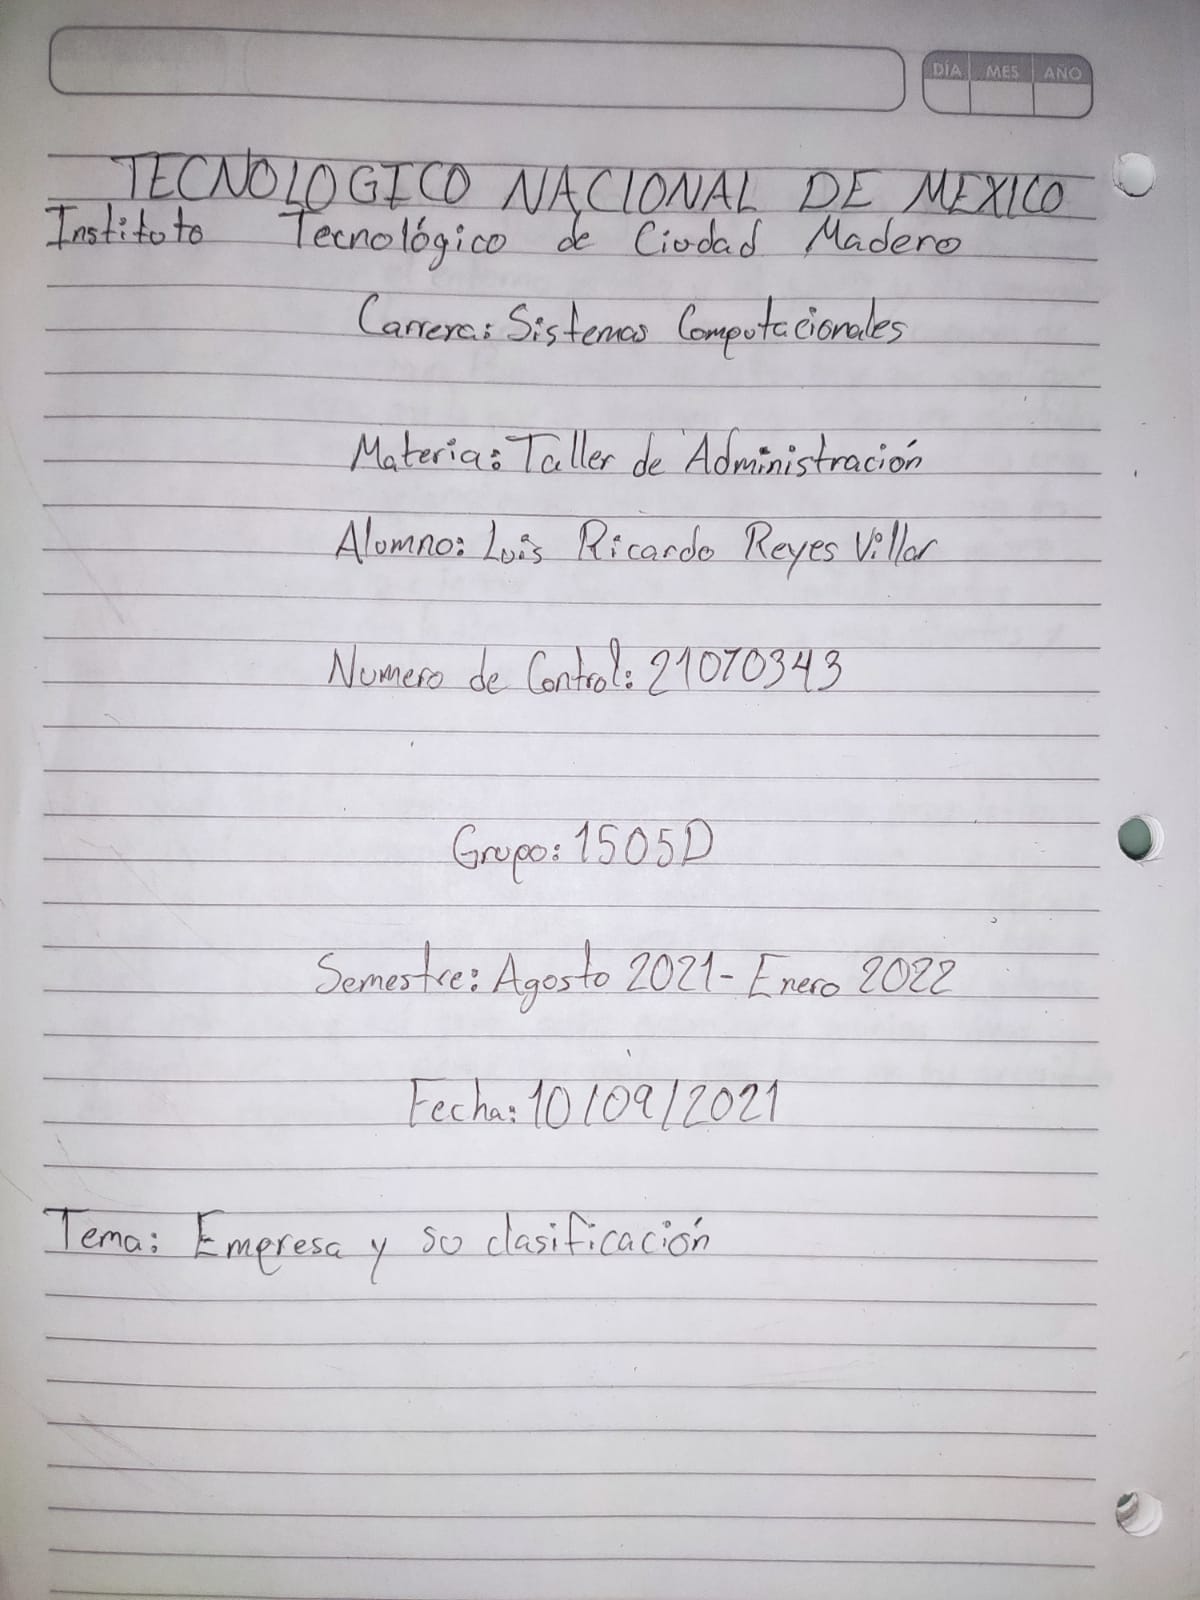 DÍA MES AÑO
TECNOLOGICO NACIONAL DE MEXICO
Instituto Tecnológico de Ciudad Madero
Carrera: Sistemas Computacionales
Materia: Taller de Administración
Alumno: Luis Ricardo Reyes Villar
Numero de Control: 21070343
Grupo: 1505D
Semestre: Agosto 2021 - Enero 2022
Fecha: 10/09/2021
Tema: Empresa y su clasificación